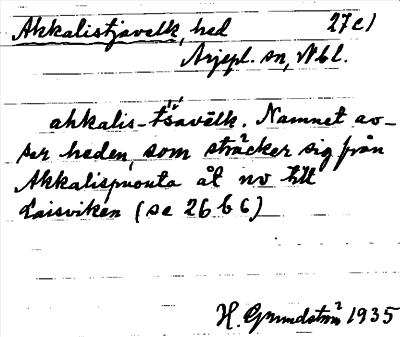 Akkalistjavelk, hed 27c1
Arjepl. sn, Nbl.
ahkalis-tšavēlk. Namnet av-
ser heden, som sträcker sig från
Akkalispuouta åt nv till
Laisviken (se 26b6)
H. Grundström 1935